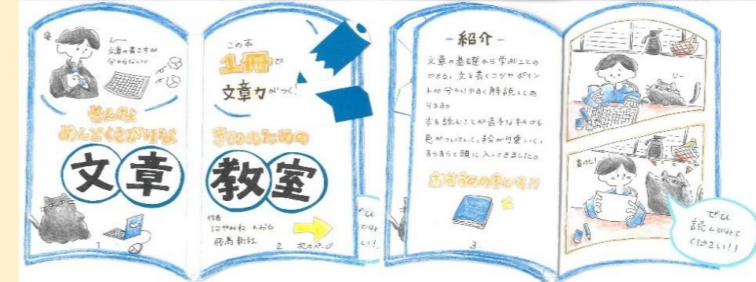 文章の書き方が
分からない…
そんな
めんどくさがりな
文章
1
この本
1冊で
文章力がつく!
きみのための
教室
作者
はやみね かおる
2 次のページ
ぜひ
-紹介-
文章の基礎から学ぶことの
できる、文を書くコツやポイン
トが分かりやすく解説してあ
ります。
本を読むことが苦手な方でも
色がついていて、絵が可愛いく、
すらすらと頭に入ってきました。
おすすめの本です!!
3
書けた!
ぜひ
読んでみて
ください!!